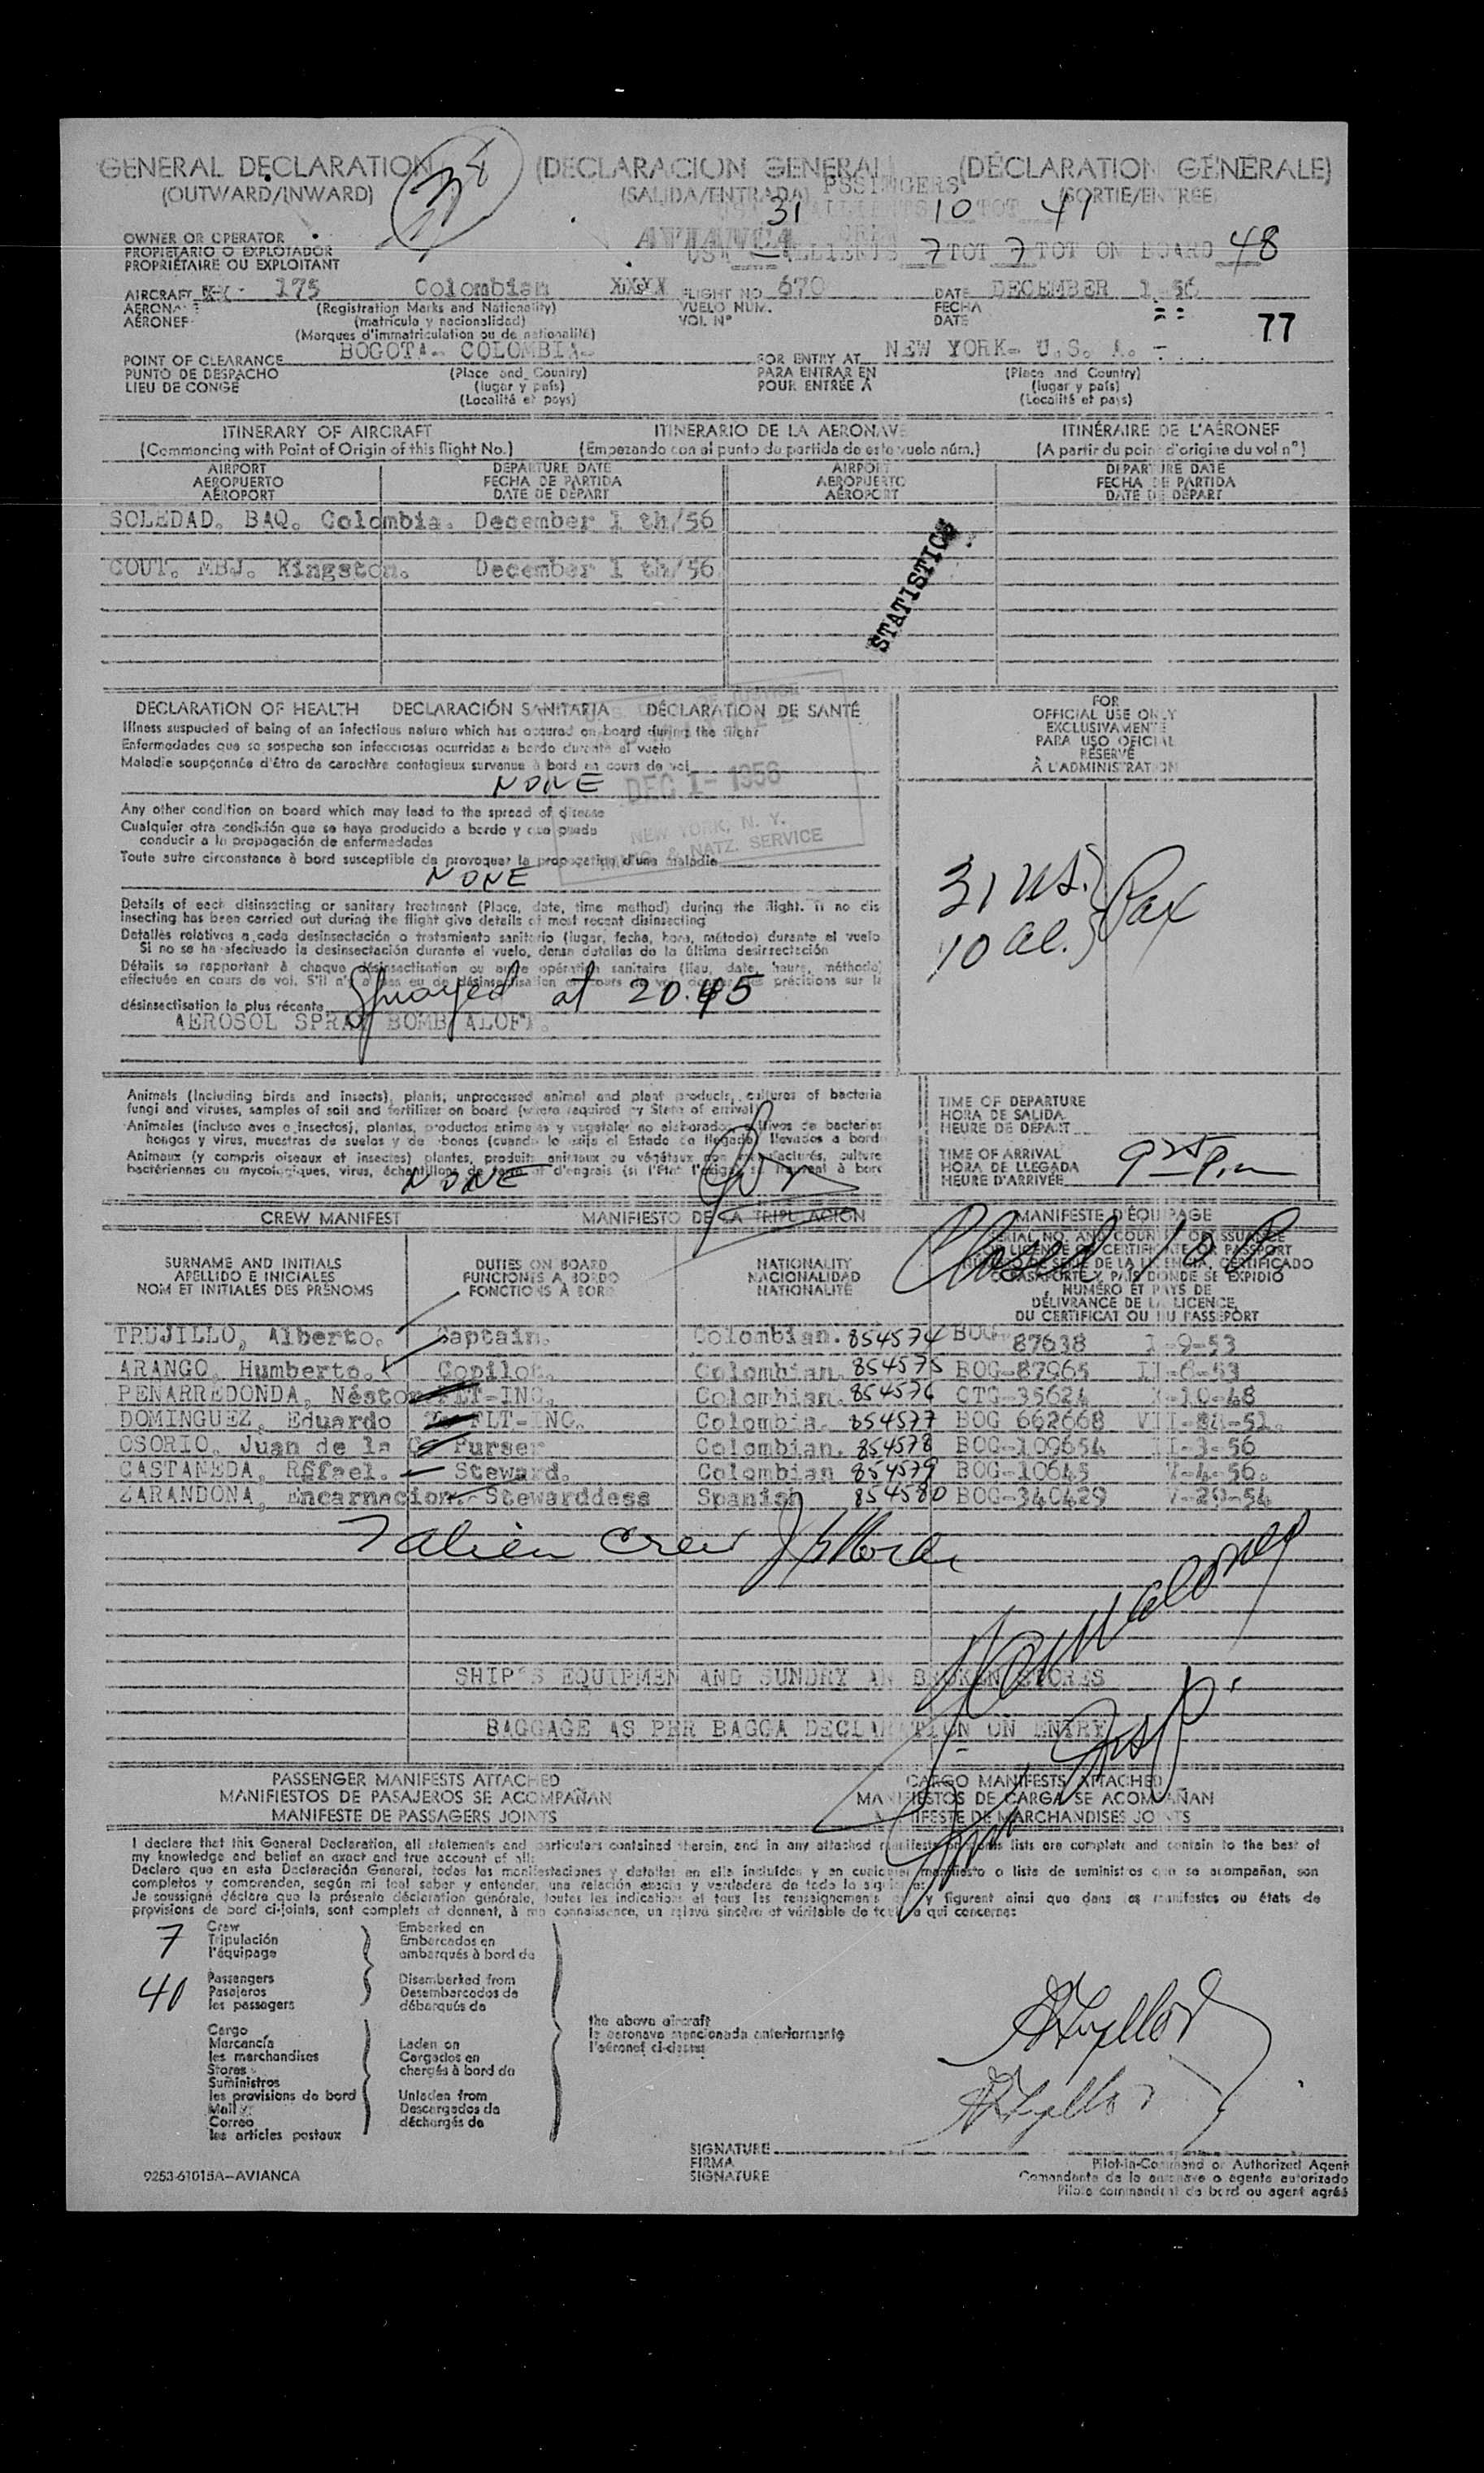 GENERAL DECLARATION (DECLARACION GENERAL) (DÉCLARATION GÉNÉRALE)
(OUTWARD/INWARD) (SALIDA/ENTRADA) (SORTIE/ENTRÉE)
PSSINGERS
31 10 TOT 41
OWNER OR OPERATOR
PROPIETARIO O EXPLOTADOR
PROPRIÉTAIRE OU EXPLOITANT
AVIANCA
USA — ALLIENTS 7 TOT 7 TOT ON BOARD 48
AIRCRAFT 175 Colombian XXXX FLIGHT NO. 670 DATE DECEMBER 1-56
(Registration Marks and Nationality) VUELO NUM. FECHA
AÉRONEF (matrícula y nacionalidad) VOL Nº DATE 77
(Marques d'immatriculation ou de nationalité)
POINT OF CLEARANCE BOGOTA- COLOMBIA- FOR ENTRY AT NEW YORK- U.S. A. -
PUNTO DE DESPACHO (Place and Country) PARA ENTRAR EN (Place and Country)
LIEU DE CONGÉ (lugar y país) POUR ENTRÉE À (lugar y país)
(Localité et pays) (Localité et pays)
ITINERARY OF AIRCRAFT ITINERARIO DE LA AERONAVE ITINÉRAIRE DE L'AÉRONEF
(Commencing with Point of Origin of this flight No.) (Empezando con el punto de partida de este vuelo núm.) (A partir du point d'origine du vol nº)
AIRPORT DEPARTURE DATE AIRPORT DEPARTURE DATE
AEROPUERTO FECHA DE PARTIDA AEROPUERTO FECHA DE PARTIDA
AÉROPORT DATE DE DÉPART AÉROPORT DATE DE DÉPART
SOLEDAD. BAQ. Colombia. December 1 th/56
COUT. MBJ. Kingston. December 1 th/56
STATISTICS
DECLARATION OF HEALTH DECLARACIÓN SANITARIA DÉCLARATION DE SANTÉ
Illness suspected of being of an infectious nature which has occured on board during the flight
Enfermedades que se sospecha son infecciosas ocurridas a bordo durante el vuelo
Maladie soupçonnée d'être de caractère contagieux survenue à bord en cours de vol
NONE
DEC 1- 1956
NEW YORK, N. Y.
& NATZ. SERVICE
FOR
OFFICIAL USE ONLY
EXCLUSIVAMENTE
PARA USO OFICIAL
RÉSERVÉ
À L'ADMINISTRATION
Any other condition on board which may lead to the spread of disease
Cualquier otra condición que se haya producido a bordo y que puede
conducir a la propagación de enfermedades
Toute autre circonstance à bord susceptible de provoquer la propagation d'une maladie
NONE
31 US.
10 al. } Pax
Details of each disinsecting or sanitary treatment (Place, date, time method) during the flight. If no dis
insecting has been carried out during the flight give details of most recent disinsecting
Detalles relativos a cada desinsectación o tratamiento sanitario (lugar, fecha, hora, método) durante el vuelo
Si no se ha efectuado la desinsectación durante el vuelo, dense detalles de la última desinsectación
Détails se rapportant à chaque désinsectisation ou autre opération sanitaire (lieu, date, heure, méthode)
effectuée en cours de vol. S'il n'y a pas eu de désinsectisation en cours de vol donner des précisions sur la
désinsectisation la plus récente Sprayed at 20.45
AEROSOL SPRAY BOMB ALOFT.
Animals (Including birds and insects), plants, unprocessed animal and plant products, cultures of bacteria
fungi and viruses, samples of soil and fertilizer on board (where required by State of arrival)
Animales (incluso aves e insectos), plantas, productos animales y vegetales no elaborados, cultivos de bacterias
hongos y virus, muestras de suelos y de abonos (cuando lo exija el Estado de llegada) llevados a bordo
Animaux (y compris oiseaux et insectes) plantes, produits animaux ou végétaux non manufacturés, culture
bactériennes ou mycologiques, virus, échantillons de terre et d'engrais (si l'État l'exige) se trouvent à bord
NONE
TIME OF DEPARTURE
HORA DE SALIDA
HEURE DE DÉPART
TIME OF ARRIVAL
HORA DE LLEGADA
HEURE D'ARRIVÉE 9 25 P.m
CREW MANIFEST MANIFIESTO DE LA TRIPULACIÓN MANIFESTE D'ÉQUIPAGE
SURNAME AND INITIALS DUTIES ON BOARD NATIONALITY SERIAL NO. AND COUNTRY OF ISSUANCE
APELLIDO E INICIALES FUNCIONES A BORDO NACIONALIDAD OF LICENCE OR CERTIFICATE OR PASSPORT
NOM ET INITIALES DES PRÉNOMS FONCTIONS À BORD NATIONALITÉ NÚMERO DE SERIE DE LA LICENCIA, CERTIFICADO
O PASAPORTE Y PAÍS DONDE SE EXPIDIÓ
NUMÉRO ET PAYS DE
DÉLIVRANCE DE LA LICENCE,
DU CERTIFICAT OU DU PASSEPORT
Closed
TRUJILLO, Alberto. Captain. Colombian. 854574 BOG- 87638 I-9-53
ARANGO, Humberto. Copilot. Colombian. 854575 BOG-87965 II-6-53
PEÑARREDONDA, Néstor FLT-ING. Colombian. 854576 CTG-35624 X-10-48
DOMINGUEZ, Eduardo FLT-ING. Colombia. 854577 BOG 662668
OSORIO, Juan de la C. Purser Colombian. 854578 BOG-109654 II-3-56
CASTAÑEDA, Rafael. Steward. Colombian 854579 BOG-10645 V-4-56.
ZARANDONA, Encarnacion. Stewarddess Spanish 854580 BOG-340429 V-29-54
7 alien crew
SHIP'S EQUIPMEN AND SUNDRY AN BROKEN STORES
BAGGAGE AS PER BAGGA DECLARATION ON ENTRY
PASSENGER MANIFESTS ATTACHED CARGO MANIFESTS ATTACHED
MANIFIESTOS DE PASAJEROS SE ACOMPAÑAN MANIFIESTOS DE CARGA SE ACOMPAÑAN
MANIFESTE DE PASSAGERS JOINTS MANIFESTE DE MARCHANDISES JOINTS
I declare that this General Declaration, all statements and particulars contained therein, and in any attached manifests or stores lists are complete and contain to the best of
my knowledge and belief an exact and true account of all:
Declaro que en esta Declaración General, todas las manifestaciones y detalles en ella incluídos y en cualquier manifiesto o lista de suministros que se acompañan, son
completos y comprenden, según mi leal saber y entender, una relación exacta y verdadera de todo lo siguiente:
Je soussigné déclare que la présente déclaration générale, toutes les indications et tous les renseignements qui y figurent ainsi que dans les manifestes ou états de
provisions de bord ci-joints, sont complets et donnent, à ma connaissance, un relevé sincère et véritable de tout ce qui concerne:
7 Crew Embarked on
Tripulación Embarcados en
l'équipage embarqués à bord de
40 Passengers Disembarked from
Pasajeros Desembarcados de
les passagers débarqués de
the above aircraft
la aeronave mencionada anteriormente
l'aéronef ci-dessus
Cargo
Mercancía Laden on
les marchandises Cargados en
Stores chargés à bord de
Suministros
les provisions de bord Unladen from
Mail Descargados de
Correo déchargés de
les articles postaux
SIGNATURE
FIRMA Pilot-in-Command or Authorized Agent
9253-61015A—AVIANCA SIGNATURE Comandante de la aeronave o agente autorizado
Pilote commandant de bord ou agent agréé